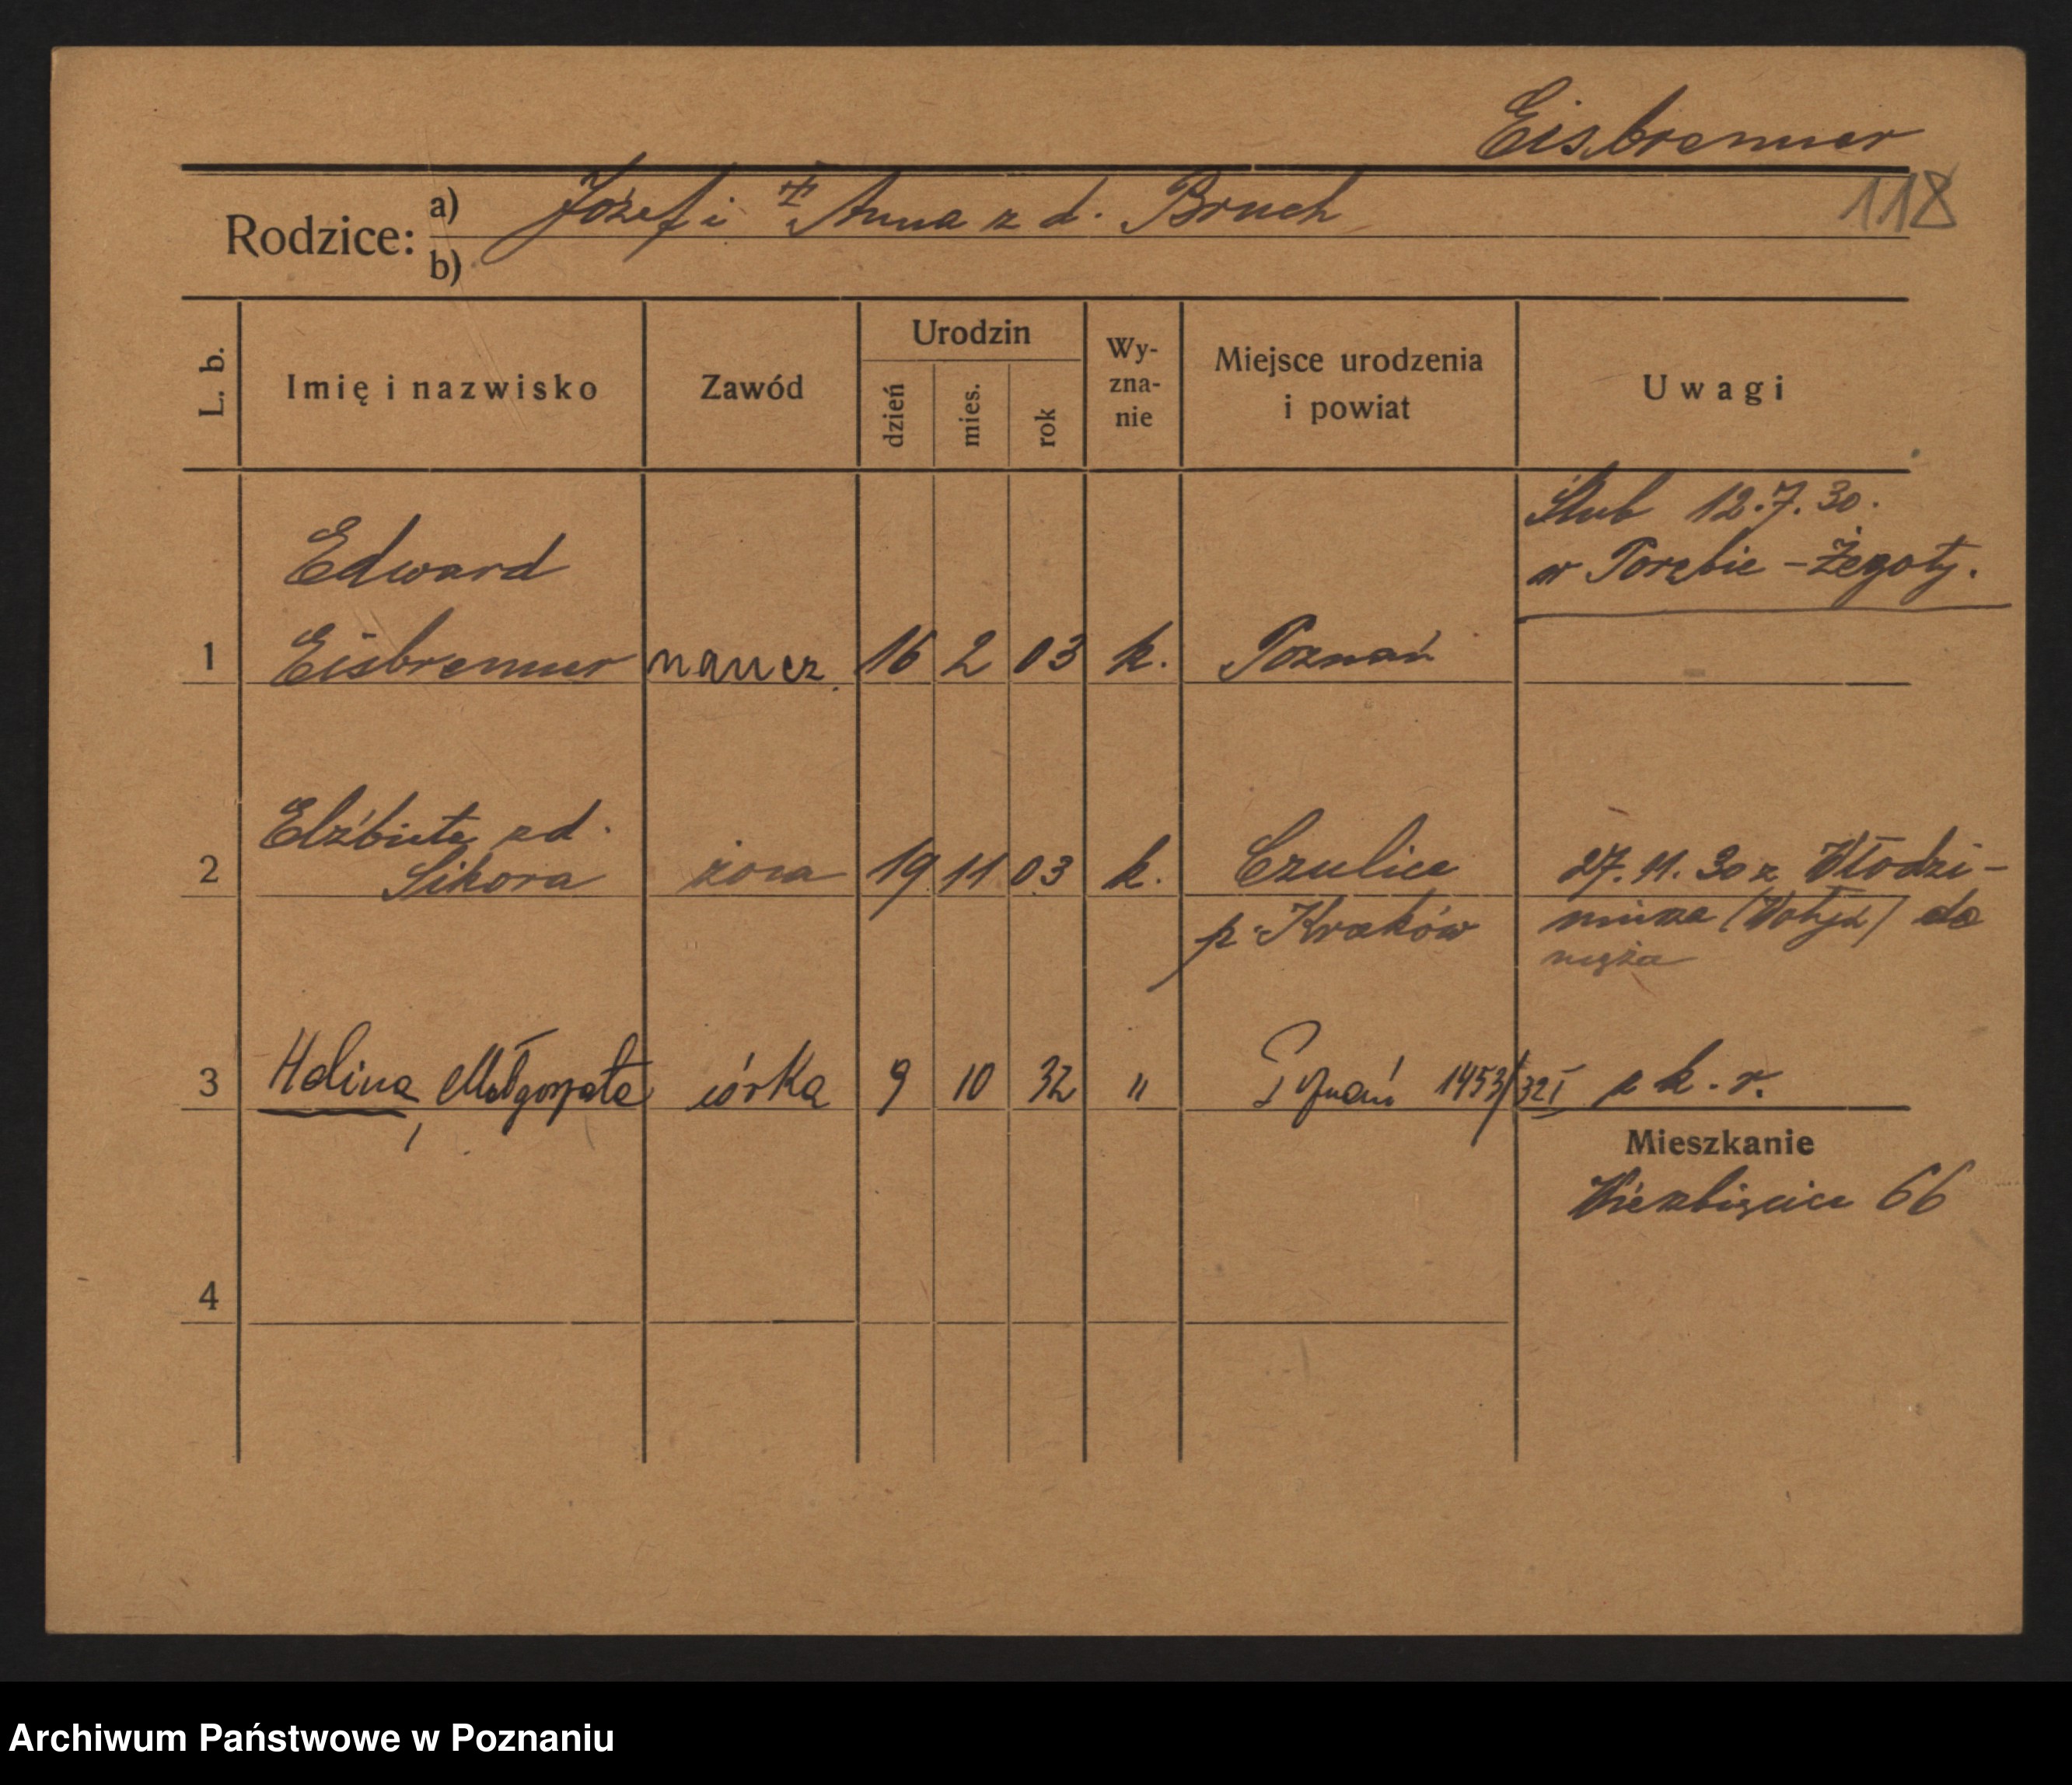 Eisbrenner
118
Rodzice: a) Józef i Anna z d. Bruch
b)
L. b. Imię i nazwisko Zawód Urodzin dzień mies. rok Wy-zna-nie Miejsce urodzenia i powiat Uwagi
Ślub 12.7.30.
w Porębie - Żegoty.
Edward
1 Eisbrenner naucz. 16 2 03 k. Poznań
Elżbieta z d.
2 Sikora żona 19 11 03 k. Czulice 27.11.30 z Włodzi-
p. Kraków mirza (Wołyń) do
męża
3 Halina, Małgorzata córka 9 10 32 " Poznań 1453/32 I p k. r.
Mieszkanie
Wierzbięcice 66
4
Archiwum Państwowe w Poznaniu